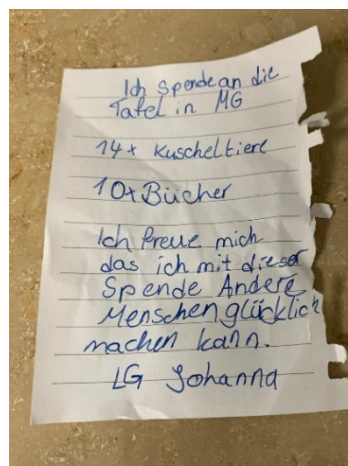 Ich spende an die
Tafel in MG
14x Kuscheltiere
10x Bücher
Ich freue mich
das ich mit dieser
Spende Andere
Menschen glücklich
machen kann.
LG Johanna